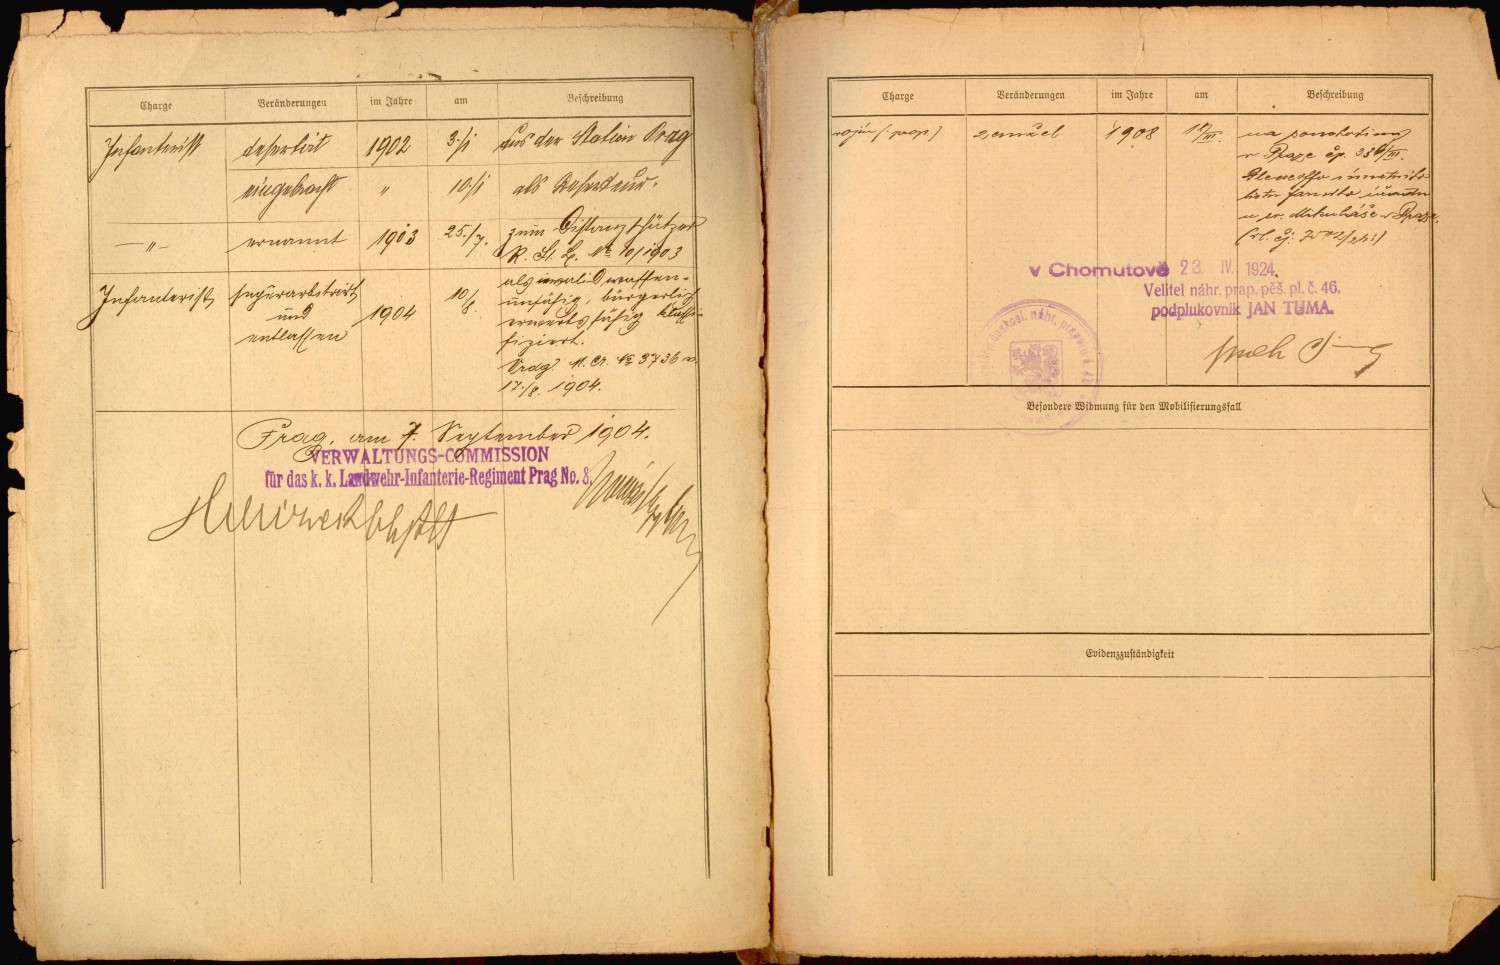 Charge Veränderungen im Jahre am Beschreibung
Infanterist desertirt 1902 3./1 aus der Station Prag
eingebracht " 10./1 als Deserteur.
—"— ernannt 1903 25./7. zum Distanzschätzer
R. St. B. No 10/1903
Infanterist superarbitrirt
und
entlassen
1904
10/8.
als invalid waffen-
unfähig, bürgerlich
erwerbsfähig klassi-
fiziert.
Prag. M. Cr. No 3736 v.
17./8. 1904.
Prag, am 7. September 1904.
VERWALTUNGS-COMMISSION
für das k. k. Landwehr-Infanterie-Regiment Prag No. 8.
Charge Veränderungen im Jahre am Beschreibung
vojín (prap.) zemřel 1908 17/III. na
v Praze čp. 336/III.
u sv. Mikuláše v Praze.
v Chomutově 23. IV. 1924.
Velitel náhr. prap. pěš. pl. č. 46.
podplukovník JAN TŮMA.
Besondere Widmung für den Mobilisierungsfall
Evidenzzuständigkeit